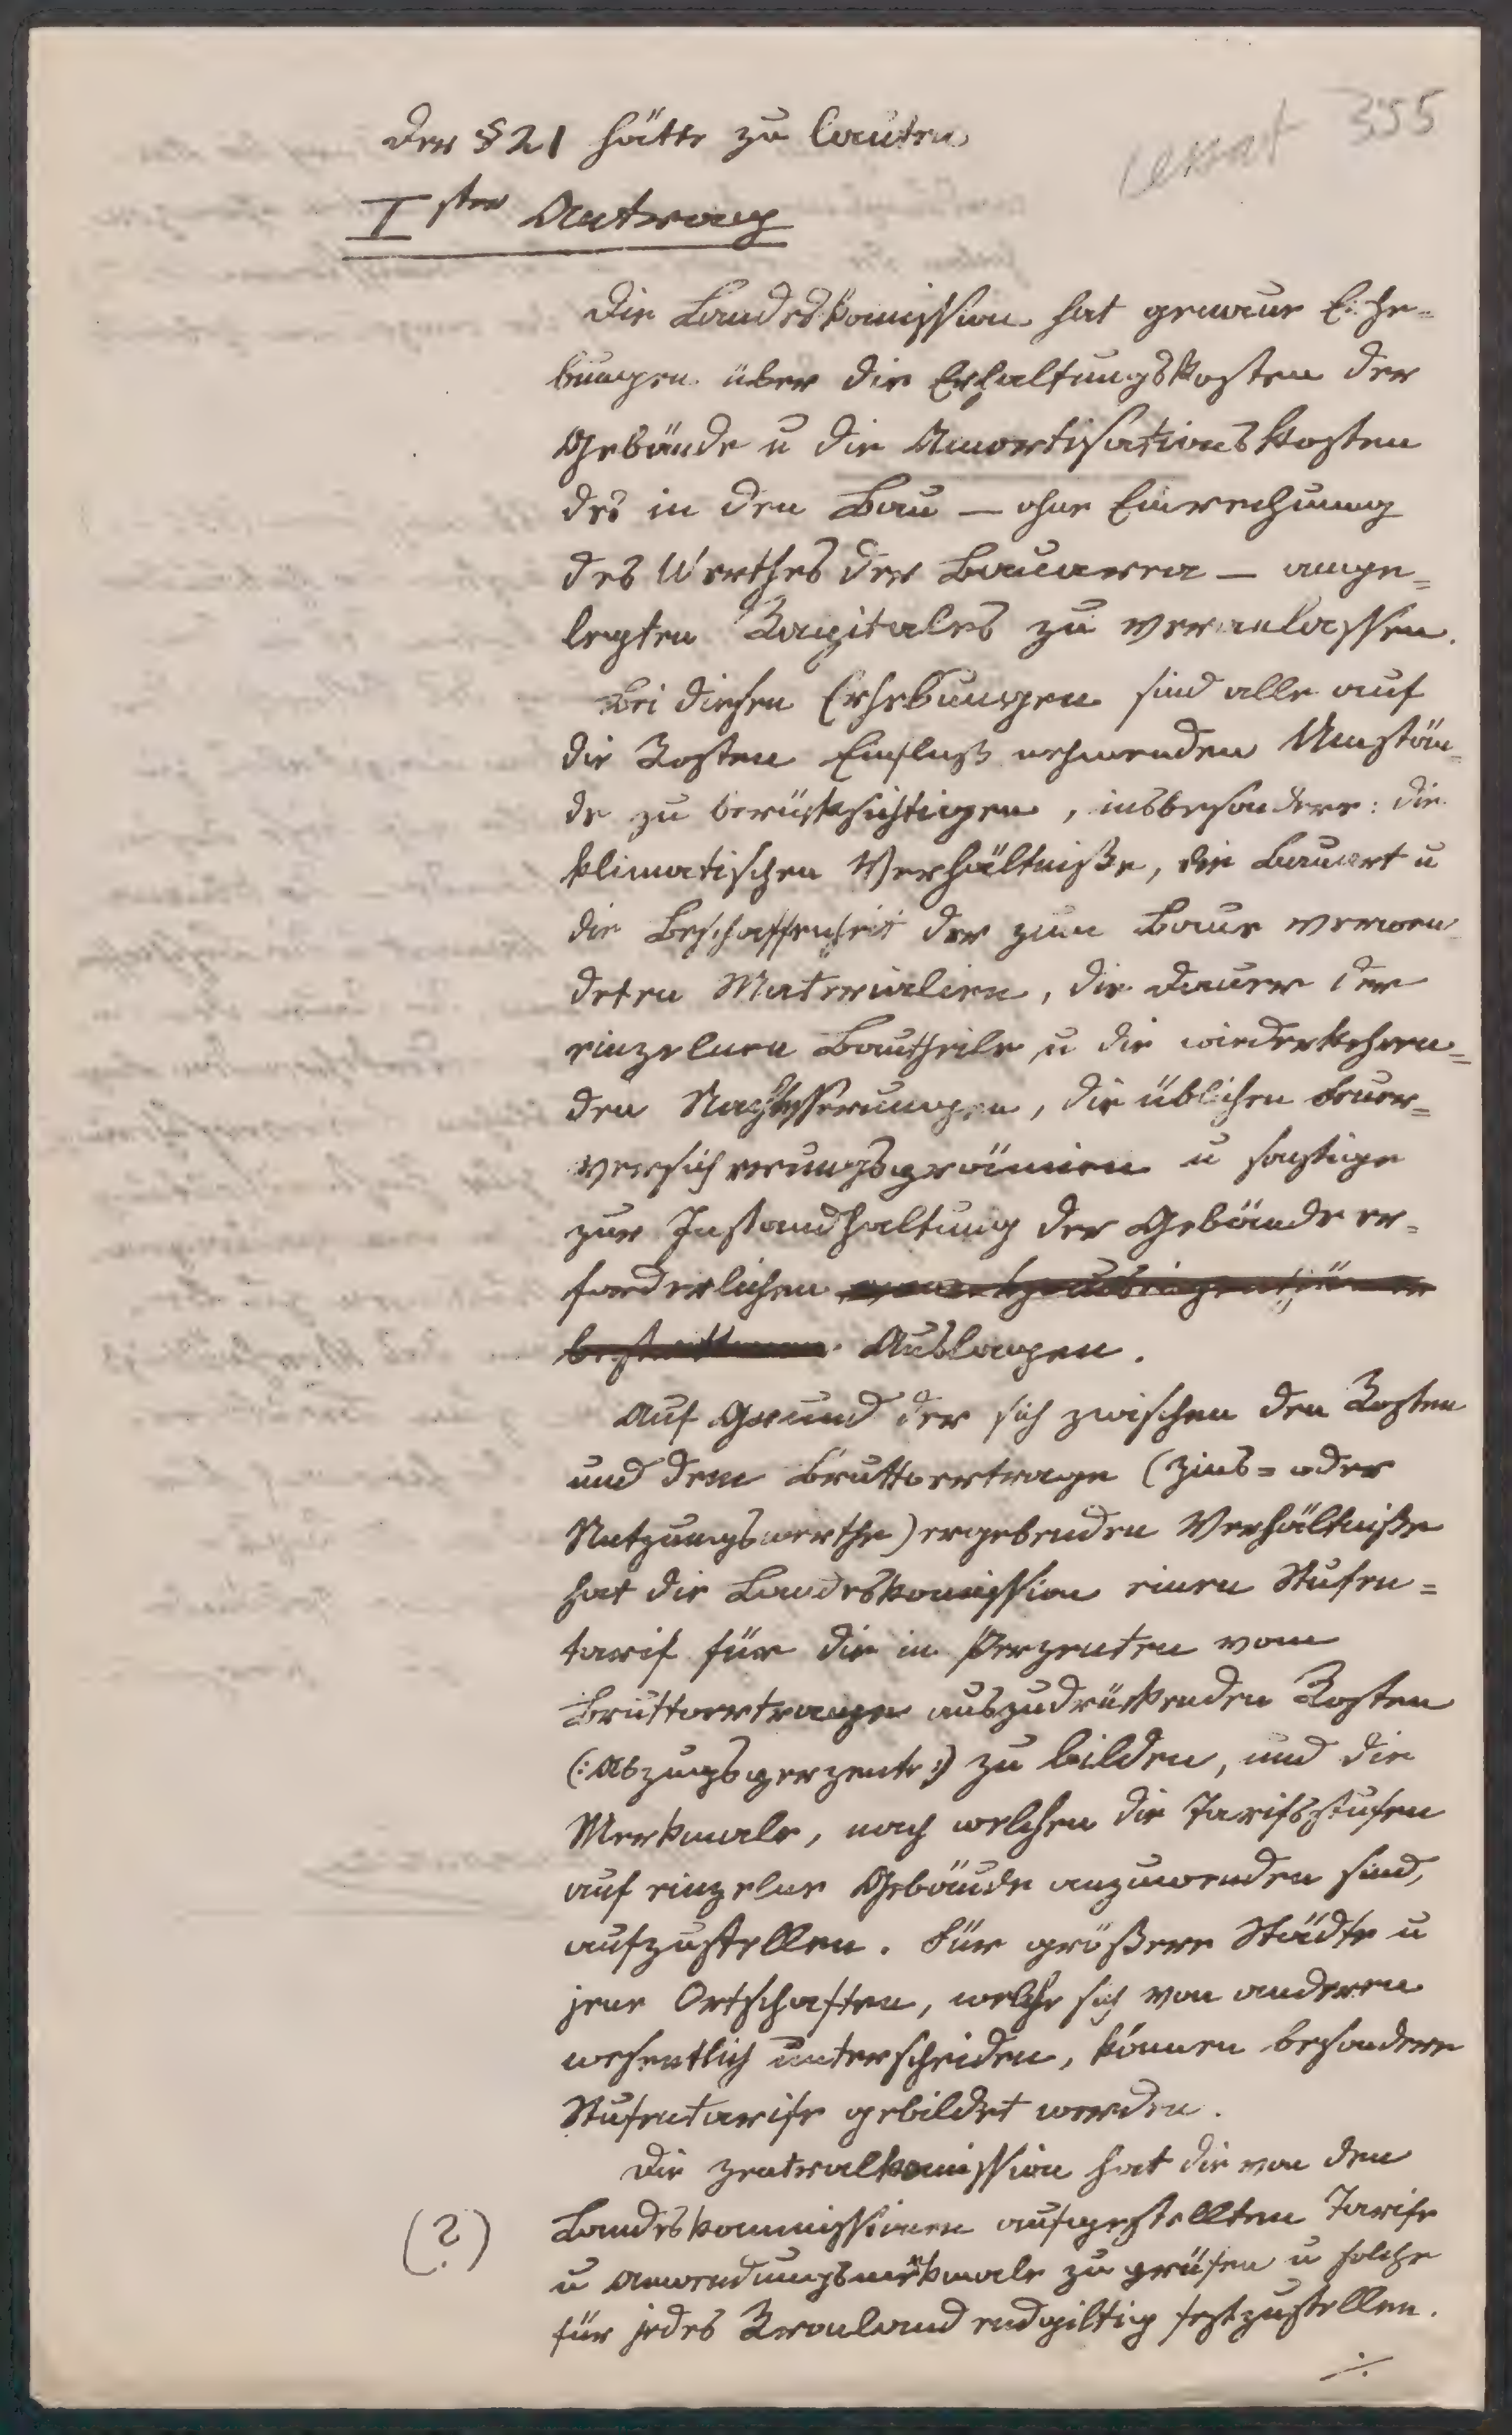 355
Der § 21 hätte zu lauten
I ster Antrag
Die Landeskomission hat genaue Erhe=
bungen über die Erhaltungskosten der
Gebäude u die Amortisationskosten
des in den Bau — ohne Einrechnung
des Werthes der Bauarea — ange=
legten Kapitales zu veranlassen.
Bei diesen Erhebungen sind alle auf
die Kosten Einfluß nehmenden Umstän=
de zu berücksichtigen, insbesondere: die
klimatischen Verhältniße, die Bauart u
die Beschaffenheit der zum Baue verwen
deten Materialien, die Dauer der
einzelnen Bautheile u die wiederkehren=
den Nachbesserungen, die üblichen Feuer=
versicherungsprämien u sonstige
zur Instandhaltung der Gebäude er=
forderlichen
Auslagen.
Auf Grund der sich zwischen den Kosten
und dem Bruttoertrage (Zins= oder
Nutzungswerthe) ergebenden Verhältniße
hat die Landeskomission einen Stufen=
tarif für die in Perzenten vom
Bruttoertrage auszudrückenden Kosten
(: Abzugsperzente :) zu bilden, und die
Merkmale, nach welchen die Tarifsstufen
auf einzelne Gebäude anzuwenden sind,
aufzustellen. Für größere Städte u
jene Ortschaften, welche sich von anderen
wesentlich unterscheiden, können besondere
Stufentarife gebildet werden.
Die Zentralkomission hat die von den
(?) Landeskommissionen aufgestellten Tarife
u Anwendungsmerkmale zu prüfen u solche
für jedes Kronland endgiltig festzustellen.
./.